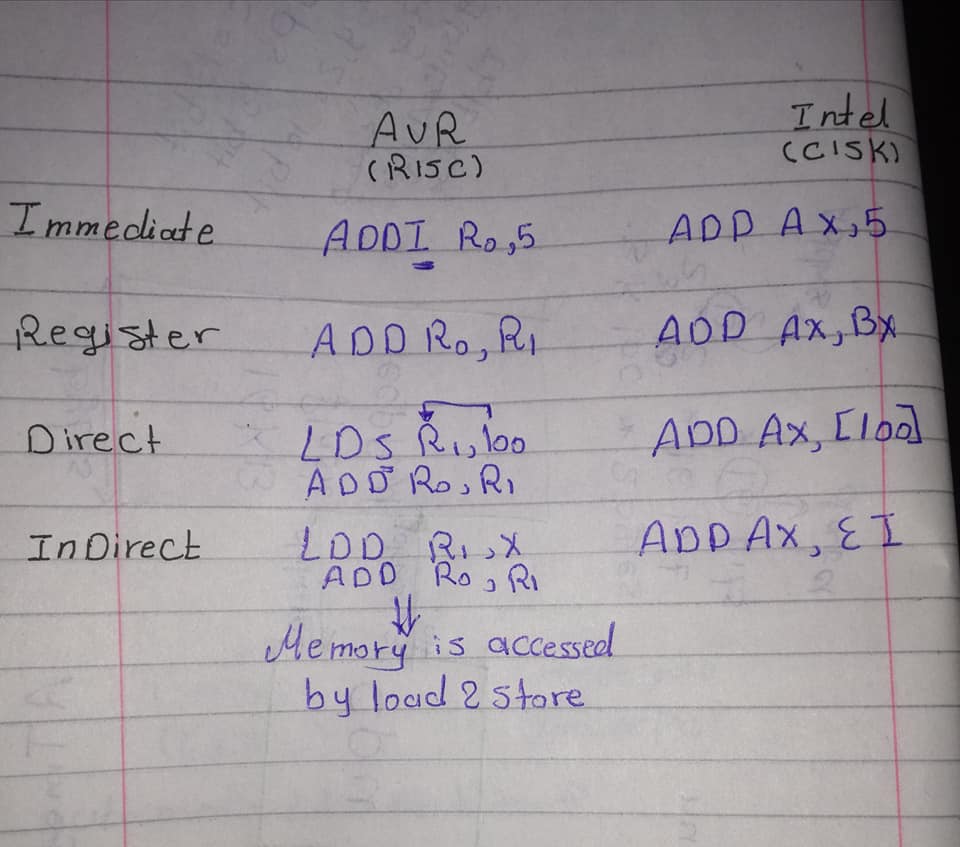 AVR Intel
(RISC) (CISK)
Immediate ADDI R0,5 ADD AX,5
Register ADD R0, R1 ADD AX, BX
Direct LDS R1,100 ADD AX, [100]
ADD R0, R1
InDirect LDD R1, X ADD AX, ƐI
ADD R0, R1
Memory is accessed
by load & store